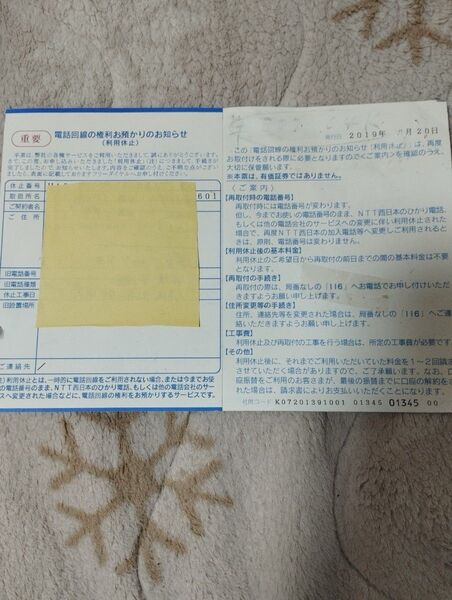 重要
電話回線の権利お預かりのお知らせ
(利用休止)
休止番号
取扱所名
601
ご契約者名
ご住所
旧電話番号
旧電話種類
休止工事日
旧設置場所
ご連絡先
利用休止とは、一時的に電話回線をご利用されない場合、または今までお使
のNTT西日本のひかり電話、もしくは他の電話会社のサービ
スへ変更された場合などに、電話回線の権利をお預かりするサービスです。
発行日 2019年 月20日
この「電話回線の権利お預かりのお知らせ(利用休止)」は、再度
お取付けをされる際に必要となりますのでご案内を確認のうえ、
大切に保管願います。
※本票は、有価証券ではありません。
〈ご案内〉
[再取付時の電話番号]
再取付時には電話番号が変わります。
但し、今までお使いの電話番号のまま、NTT西日本のひかり電話、
もしくは他の電話会社のサービスへの変更に伴い利用休止された
場合で、再度NTT西日本の加入電話等へ変更しご利用されると
きは、原則、電話番号は変わりません。
[利用休止後の基本料金]
利用休止のご希望日から再取付の前日までの間の基本料金は不要
となります。
[再取付の手続き]
再取付の際は、局番なしの「116」へお電話でお申し付けいただ
きますようお願い申し上げます。
[住所変更等の手続き]
住所、連絡先等を変更された場合は、局番なしの「116」へご連
絡いただきますようお願い申し上げます。
[工事費]
利用休止および再取付の工事を行う場合は、所定の工事費が必要で
[その他]
利用休止後に、それまでご利用いただいていた料金を1~2回請求
させていただく場合がありますので、ご了承願います。なお、口
座振替をご利用のお客さまが、最後の振替までに口座の解約を
れた場合は、請求書によりお支払いいただくことになります。
K07201391001 01345 01345 00